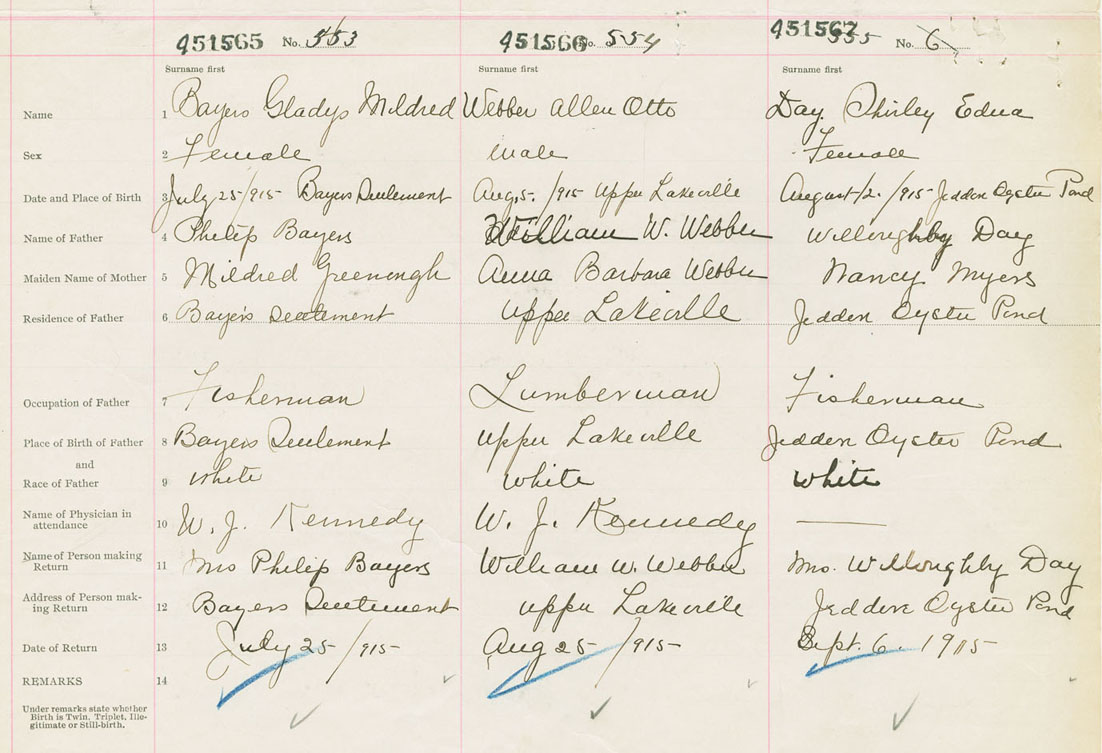 451565 No. 553 451566 No. 554 451567 555 No. 6
Surname first Surname first Surname first
Name 1 Bayers Gladys Mildred Webber Allen Otto Day Shirley Edna
Sex 2 Female male Female
Date and Place of Birth 3 July 25/915 Bayers Settlement Aug. 5. /915 Upper Lakeville August 12. /915 Jeddore Oyster Pond
Name of Father 4 Philip Bayers William W. Webber Willoughby Day
Maiden Name of Mother 5 Mildred Greenough Anna Barbara Webber Nancy Myers
Residence of Father 6 Bayers Settlement Upper Lakeville Jeddore Oyster Pond
Occupation of Father 7 Fisherman Lumberman Fisherman
Place of Birth of Father 8 Bayers Settlement Upper Lakeville Jeddore Oyster Pond
and
Race of Father 9 White White White
Name of Physician in
attendance 10 W. J. Kennedy W. J. Kennedy
Name of Person making
Return 11 Mrs Philip Bayers William W. Webber Mrs. Willoughby Day
Address of Person mak-
ing Return 12 Bayers Settlement Upper Lakeville Jeddore Oyster Pond
Date of Return 13 July 25/915 Aug 25/915 Sept. 6. 1915
REMARKS 14
Under remarks state whether
Birth is Twin, Triplet, Ille-
gitimate or Still-birth.